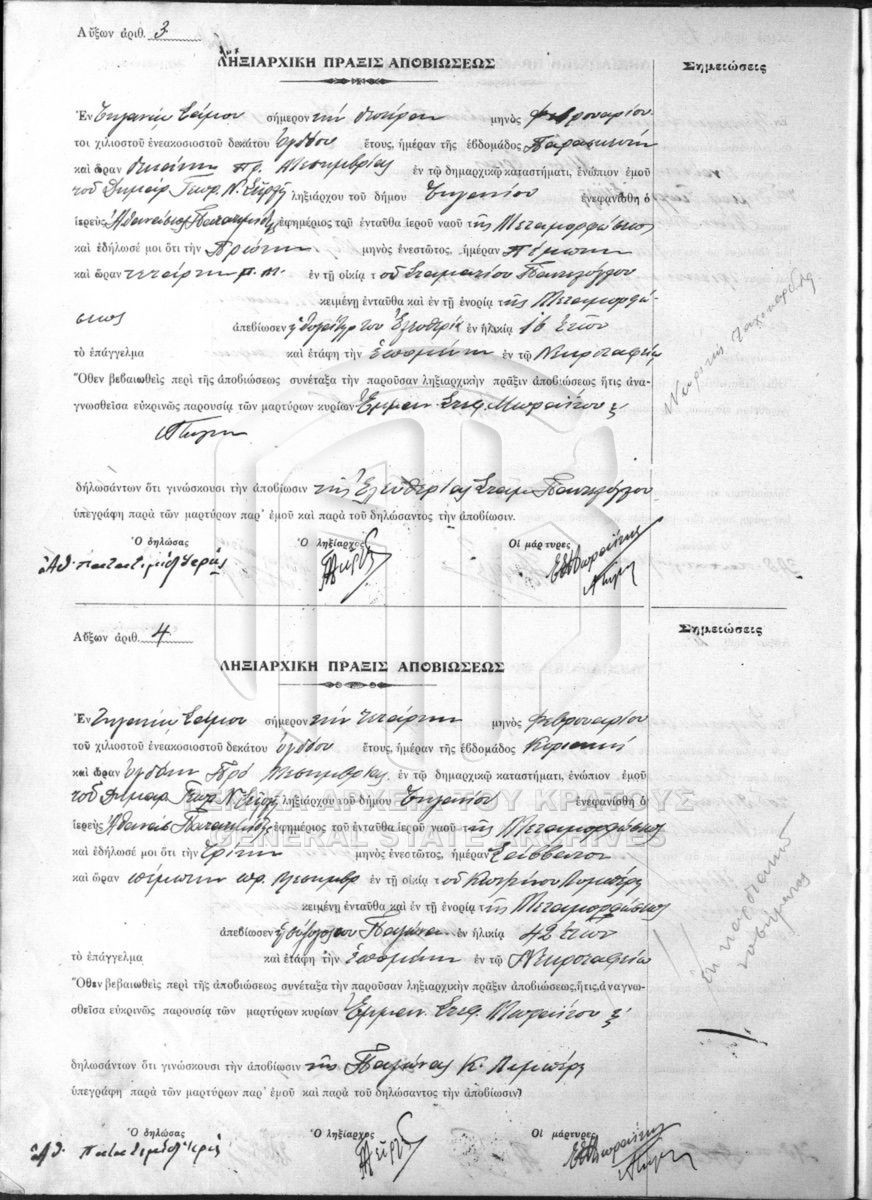 Αὔξων ἀριθ. 3
ΛΗΞΙΑΡΧΙΚΗ ΠΡΑΞΙΣ ΑΠΟΒΙΩΣΕΩΣ
Σημειώσεις
Ἐν Τηγανίῳ Σάμου σήμερον τὴν δευτέραν μηνὸς Φεβρουαρίου
τοι χιλιοστοῦ ἐνεακοσιοστοῦ δεκάτου ὀγδόου ἔτους, ἡμέραν τῆς ἑβδομάδος Παρασκευὴ
καὶ ὥραν δεκάτην πρ. Μεσημβρίας ἐν τῷ δημαρχικῷ καταστήματι, ἐνώπιον ἐμοῦ
τοῦ Δημάρ. Γεωρ. Ν. ληξιάρχου τοῦ δήμου Τηγανίου ἐνεφανίσθη ὁ
ἱερεὺς Ἀθανάσιος ἐφημέριος τοῦ ἐνταῦθα ἱεροῦ ναοῦ τῆς Μεταμορφώσεως
καὶ ἐδήλωσέ μοι ὅτι τὴν Πρώτην μηνὸς ἐνεστῶτος, ἡμέραν Πέμπτην
καὶ ὥραν τετάρτην π.μ. ἐν τῇ οἰκίᾳ τοῦ Σταματίου
κειμένῃ ἐνταῦθα καὶ ἐν τῇ ἐνορίᾳ τῆς Μεταμορφώ-
σεως ἀπεβίωσεν ἡ θυγάτηρ του Ἐλευθερία ἐν ἡλικίᾳ 16 ἐτῶν
τὸ ἐπάγγελμα καὶ ἐτάφη τὴν ἑπομένην ἐν τῷ Νεκροταφείῳ
Ὅθεν βεβαιωθεὶς περὶ τῆς ἀποβιώσεως συνέταξα τὴν παροῦσαν ληξιαρχικὴν πρᾶξιν ἀποβιώσεως ἥτις ἀνα-
γνωσθεῖσα εὐκρινῶς παρουσίᾳ τῶν μαρτύρων κυρίων Ἐμμαν. Στεφ. Μωραΐτου &
δηλωσάντων ὅτι γινώσκουσι τὴν ἀποβίωσιν τῆς Ἐλευθερίας Σταμ.
ὑπεγράφη παρὰ τῶν μαρτύρων παρ' ἐμοῦ καὶ παρὰ τοῦ δηλώσαντος τὴν ἀποβίωσιν.
Ὁ δηλώσας Ὁ ληξίαρχος Οἱ μάρτυρες
Αὔξων ἀριθ. 4
ΛΗΞΙΑΡΧΙΚΗ ΠΡΑΞΙΣ ΑΠΟΒΙΩΣΕΩΣ
Σημειώσεις
Ἐν Τηγανίῳ Σάμου σήμερον τὴν τετάρτην μηνὸς Φεβρουαρίου
τοῦ χιλιοστοῦ ἐνεακοσιοστοῦ δεκάτου ὀγδόου ἔτους, ἡμέραν τῆς ἑβδομάδος Κυριακὴ
καὶ ὥραν ὀγδόην Πρὸ Μεσημβρίας ἐν τῷ δημαρχικῷ καταστήματι, ἐνώπιον ἐμοῦ
τοῦ Δημάρ. Γεωρ. Ν. ληξιάρχου τοῦ δήμου Τηγανίου ἐνεφανίσθη ὁ
ΓΕΝΙΚΑ ΑΡΧΕΙΑ ΤΟΥ ΚΡΑΤΟΥΣ
ἱερεὺς Ἀθανάσ. ἐφημέριος τοῦ ἐνταῦθα ἱεροῦ ναοῦ τῆς Μεταμορφώσεως
GENERAL STATE ARCHIVES
καὶ ἐδήλωσέ μοι ὅτι τὴν Τρίτην μηνὸς ἐνεστῶτος, ἡμέραν Σάββατον
καὶ ὥραν πέμπτην πρ. μεσημβρ ἐν τῇ οἰκίᾳ τοῦ
κειμένῃ ἐνταῦθα καὶ ἐν τῇ ἐνορίᾳ τῆς Μεταμορφώσεως
ἀπεβίωσεν ἡ σύζυγός του Παγώνα ἐν ἡλικίᾳ 42 ἐτῶν
τὸ ἐπάγγελμα καὶ ἐτάφη τὴν ἑπομένην ἐν τῷ Νεκροταφείῳ
Ὅθεν βεβαιωθεὶς περὶ τῆς ἀποβιώσεως συνέταξα τὴν παροῦσαν ληξιαρχικὴν πρᾶξιν ἀποβιώσεως, ἥτις, ἀναγνω-
σθεῖσα εὐκρινῶς παρουσίᾳ τῶν μαρτύρων κυρίων Ἐμμαν. Στεφ. Μωραΐτου &
ἐκ καρδιακοῦ
νοσήματος
δηλωσάντων ὅτι γινώσκουσι τὴν ἀποβίωσιν τῆς Παγώνας Κ.
ὑπεγράφη παρὰ τῶν μαρτύρων παρ' ἐμοῦ καὶ παρὰ τοῦ δηλώσαντος τὴν ἀποβίωσιν
Ὁ δηλώσας Ὁ ληξίαρχος Οἱ μάρτυρες